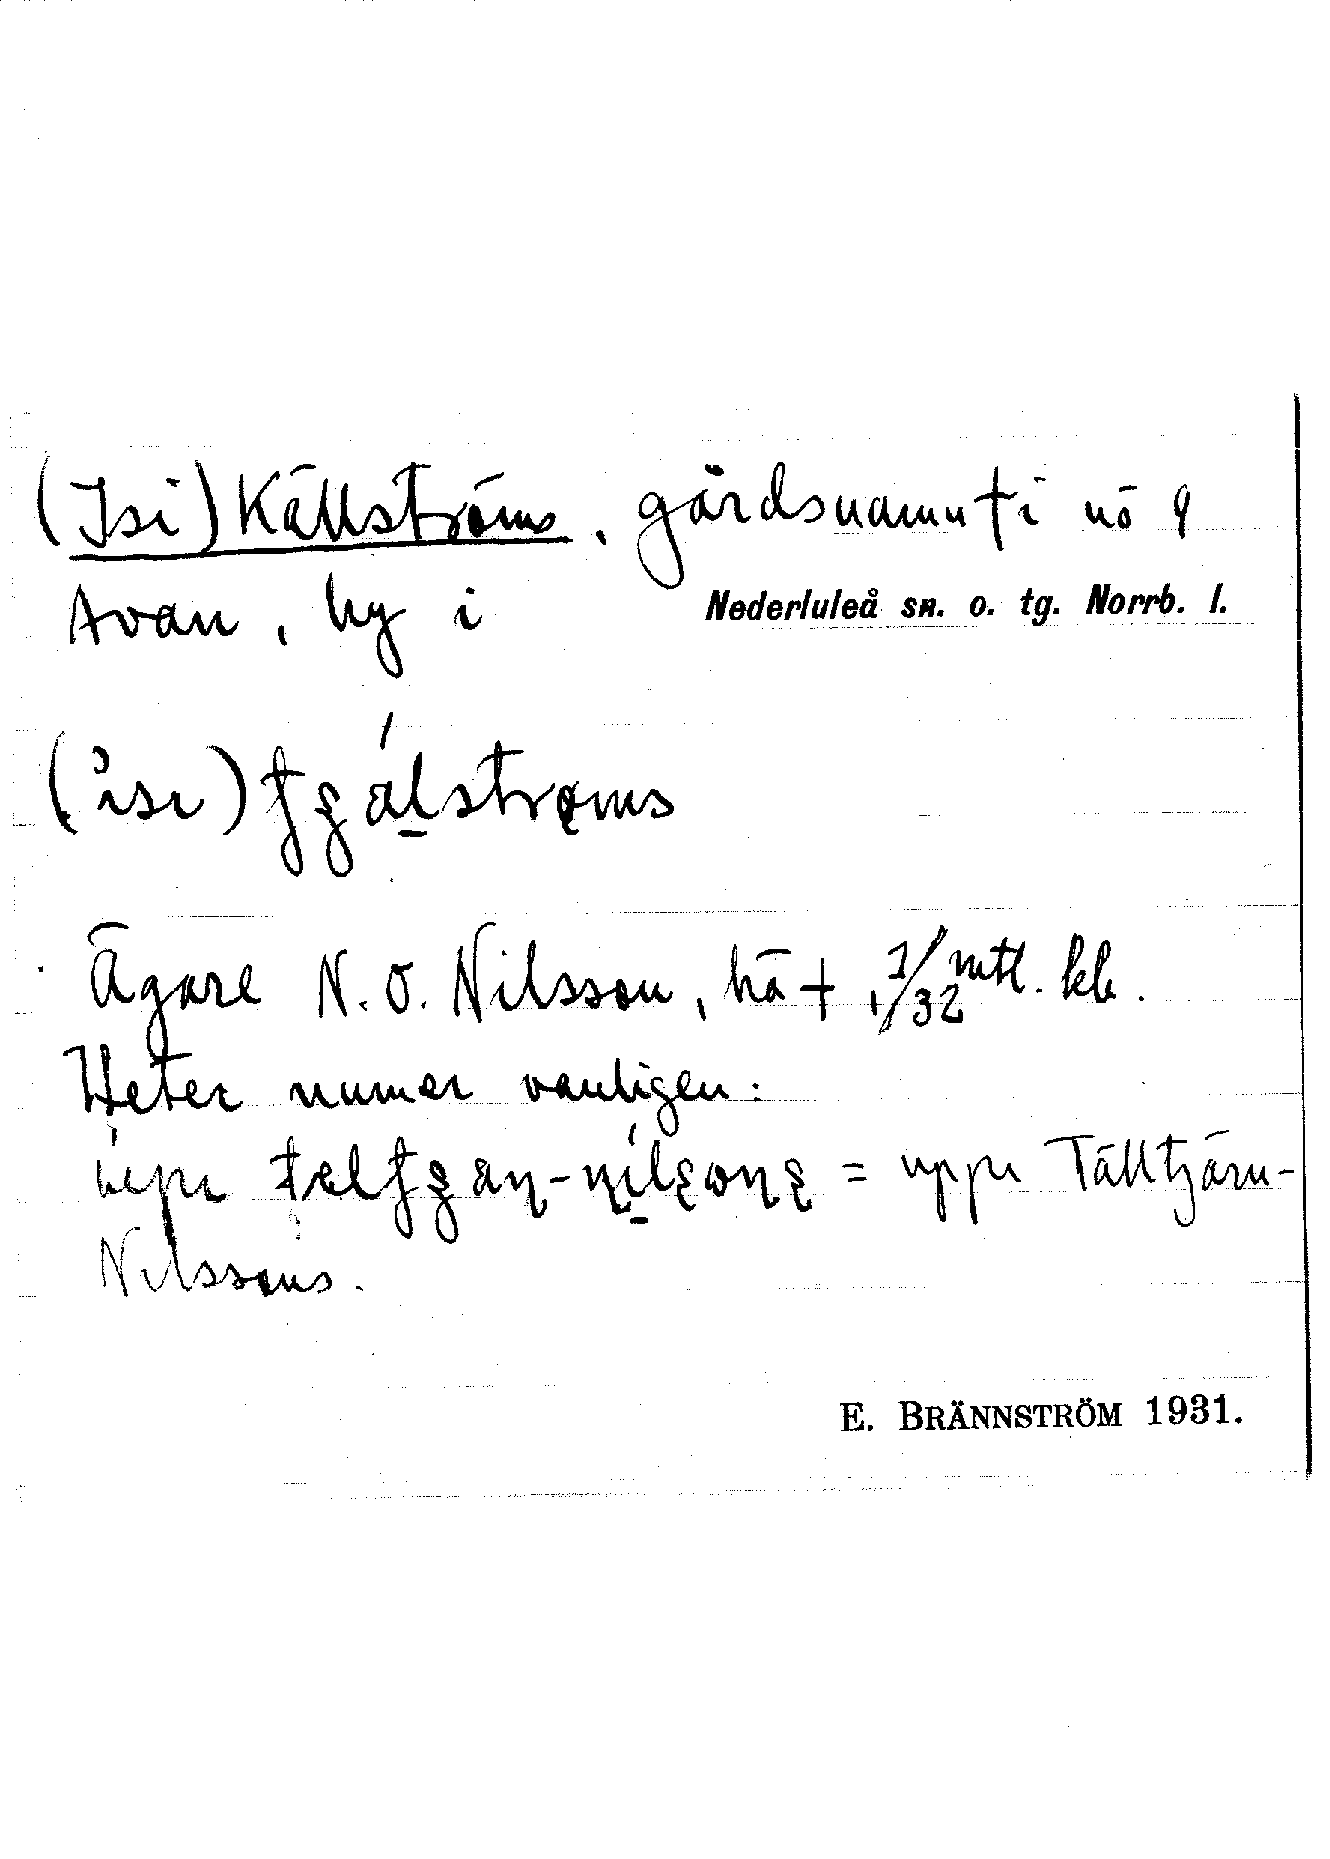 (Isi) Källströms, gårdsnamn † i nö 9
Avan, by i Nederluleå sn. o. tg. Norrb. l.
Ägare N. O. Nilsson, hä +, 1/32 mtl. kb.
Heter numer vanligen:
= uppi Tälltjärn-
Nilssons.
E. BRÄNNSTRÖM 1931.